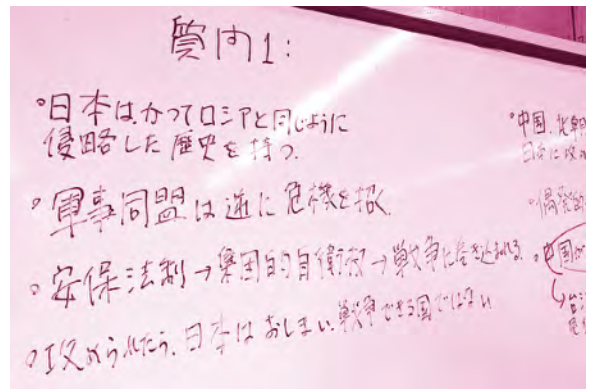 質问1:
°日本は、かつてロシアと同じように
侵略した歴史を持つ.
°軍事同盟は逆に危機を招く.
°安保法制→集団的自衛权→戦争に巻き込まれる.
°攻められたら、日本はおしまい.戦争できる国ではない
°中国、北朝
日本に攻め
°偶発的
°中国が
↳台湾